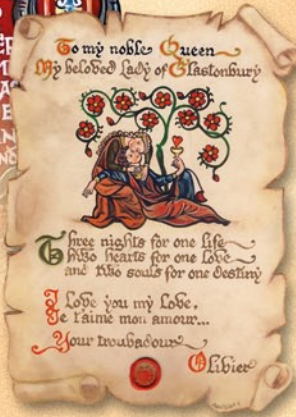 To my noble Queen
My beloved Lady of Glastonbury
Three nights for one life
two hearts for one Love
and two souls for one destiny
I Love you my Love,
Je t'aime mon amour...
Your troubadour
Olivier